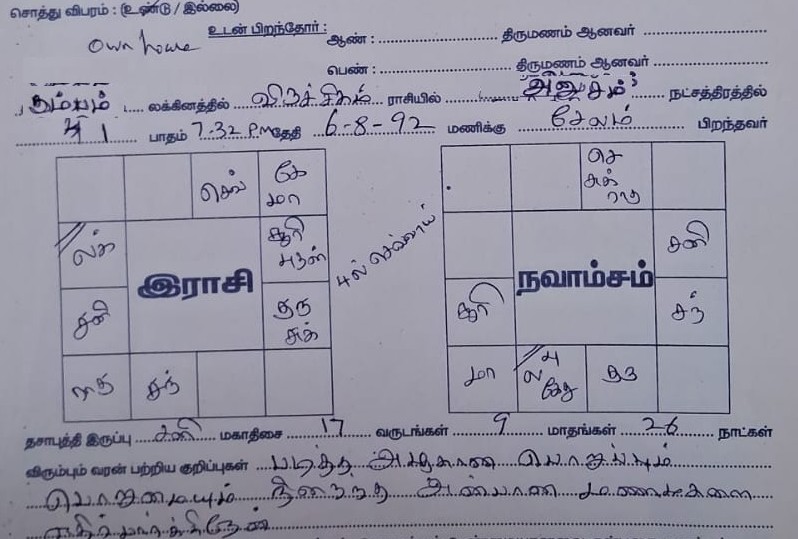 சொத்து விபரம் : (உண்டு / இல்லை)
own house
உடன் பிறந்தோர் : ஆண் : திருமணம் ஆனவர்
பெண் : திருமணம் ஆனவர்
கும்பம் லக்கினத்தில் விருச்சிகம் ராசியில் அனுசம் நட்சத்திரத்தில்
1 பாதம் 7-32 P.M தேதி 6-8-92 மணிக்கு சேலம் பிறந்தவர்
செவ் கே மா
லக் சூரி புதன்
இராசி
சனி குரு சுக்
ராகு சந்
4ல் செவ்வாய்
செ சுக் ராகு
சனி
நவாம்சம்
சூரி சந்
மா ல பு கேது குரு
தசாபுத்தி இருப்பு சனி மகாதிசை 17 வருடங்கள் 9 மாதங்கள் 26 நாட்கள்
விரும்பும் வரன் பற்றிய குறிப்புகள் படித்த அழகான பொறுப்பும்
பொறுமையும் நிறைந்த அன்பான மணமகளை
எதிர்பார்க்கிறேன்